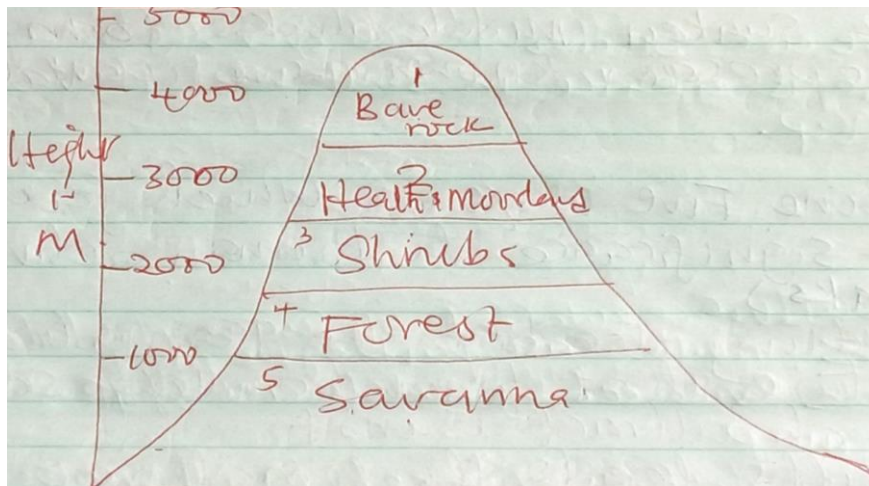 5000
4000
Height
in
M
3000
2000
1000
1
Bare
rock
2
Heath & moorlands
3 Shrubs
4 Forest
5 Savanna